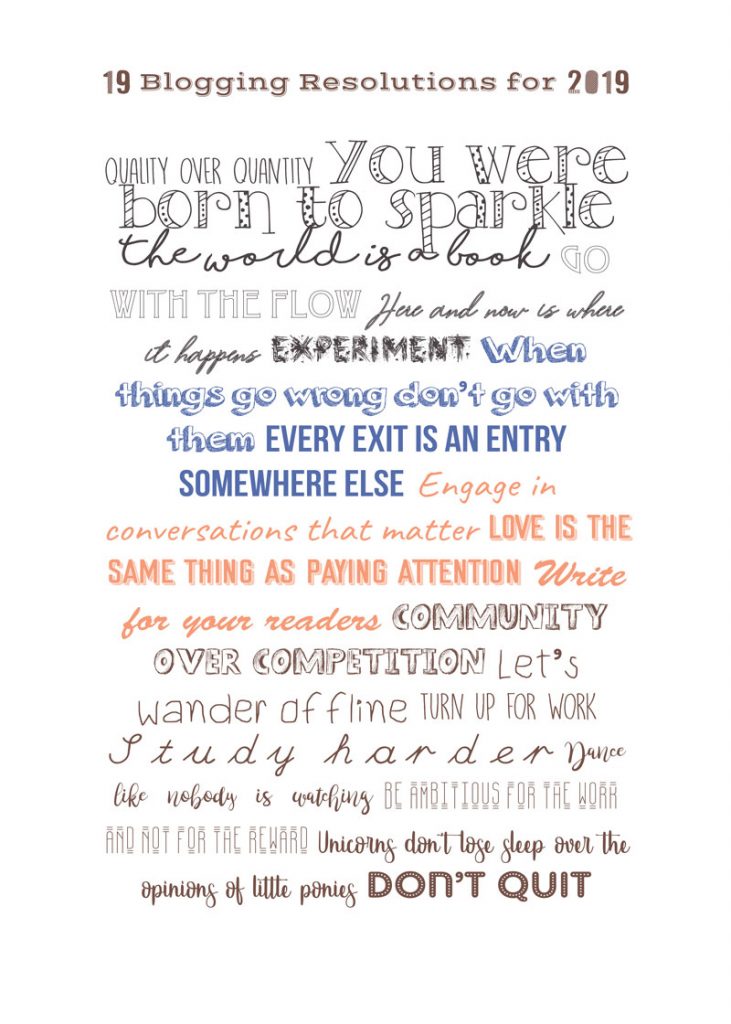 19 Blogging Resolutions for 2019
QUALITY OVER QUANTITY You were
born to sparkle
the world is a book GO
WITH THE FLOW Here and now is where
it happens EXPERIMENT When
things go wrong don't go with
them EVERY EXIT IS AN ENTRY
SOMEWHERE ELSE Engage in
conversations that matter LOVE IS THE
SAME THING AS PAYING ATTENTION Write
for your readers COMMUNITY
OVER COMPETITION Let's
wander offline TURN UP FOR WORK
Study harder Dance
like nobody is watching BE AMBITIOUS FOR THE WORK
AND NOT FOR THE REWARD Unicorns don't lose sleep over the
opinions of little ponies DON'T QUIT